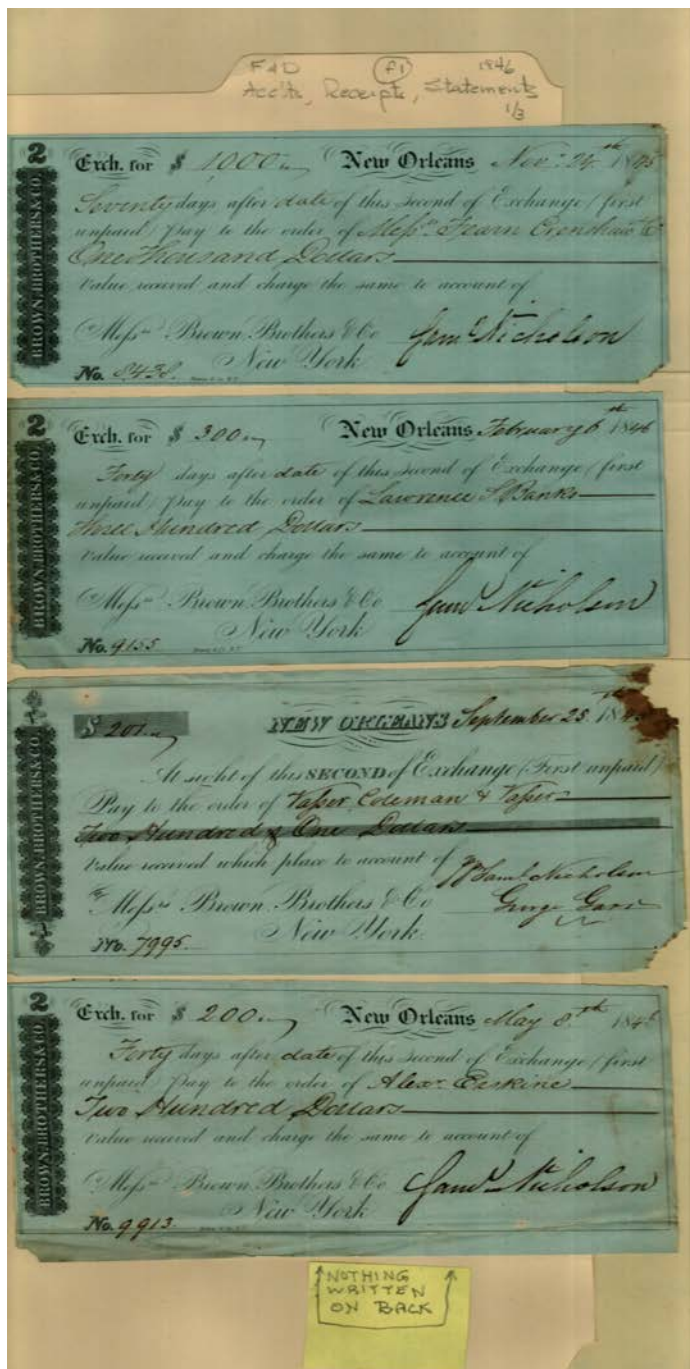 F&D f1 1846
Acc'ts, Receipts, Statements
1/3
2
BROWN BROTHERS & CO.
Exch. for $ 1000 New Orleans Nov: 24th 1845
Seventy days after date of this second of Exchange (first
unpaid) Pay to the order of Messrs. Fearn Crenshaw & Co
One Thousand Dollars
Value received and charge the same to account of
Messrs. Brown Brothers & Co Saml Nicholson
New York
No. 8438
2
BROWN BROTHERS & CO.
Exch. for $ 300 New Orleans February 6th 1846
Forty days after date of this second of Exchange (first
unpaid) Pay to the order of Lawrence S Banks
Three Hundred Dollars
Value received and charge the same to account of
Messrs. Brown Brothers & Co Saml Nicholson
New York
No. 9155
BROWN BROTHERS & CO.
$ 201 NEW ORLEANS September 25th 1845
At sight of this SECOND of Exchange (First unpaid)
Pay to the order of Vasser Coleman & Vasser
Two Hundred & One Dollars
Value received which place to account of
Saml Nicholson
Messrs. Brown Brothers & Co George
New York
No. 7995
2
BROWN BROTHERS & CO.
Exch. for $ 200 New Orleans May 8th 1846
Forty days after date of this second of Exchange (first
unpaid) Pay to the order of Alexr. Erskine
Two Hundred Dollars
Value received and charge the same to account of
Messrs. Brown Brothers & Co Saml Nicholson
New York
No. 9913
NOTHING
WRITTEN
ON BACK